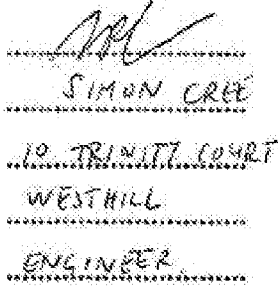 SIMON CREE
10 TRINITY COURT
WESTHILL
ENGINEER